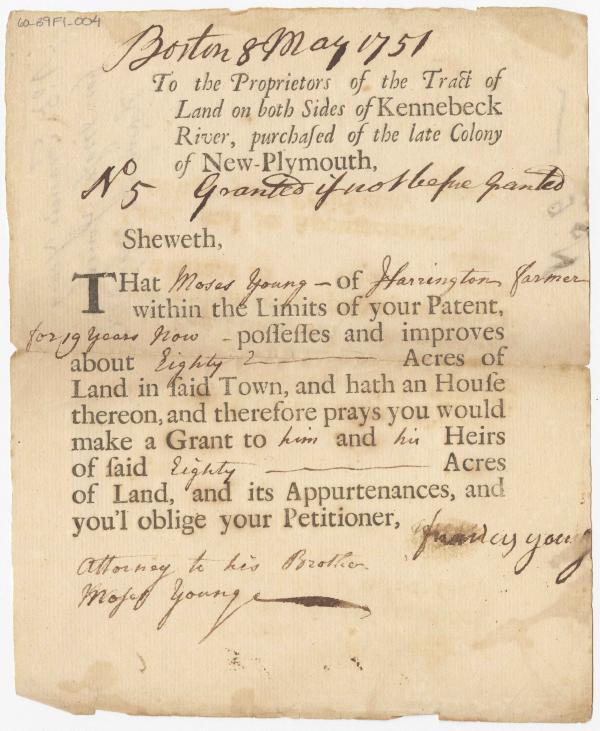 60-B9F1-004
Boston 8 May 1751
To the Proprietors of the Tract of
Land on both Sides of Kennebeck
River, purchaſed of the late Colony
of New-Plymouth,
No 5 Granted if not before Granted
Sheweth,
THat Moses Young - of Harrington farmer
within the Limits of your Patent,
for 19 Years Now - poſſeſſes and improves
about Eighty Acres of
Land in ſaid Town, and hath an Houſe
thereon, and therefore prays you would
make a Grant to him and his Heirs
of ſaid Eighty Acres
of Land, and its Appurtenances, and
you'l oblige your Petitioner,
francis young
Attorney to his Brother
Moses Young